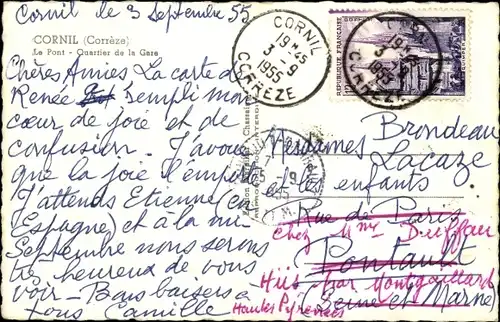 Cornil le 3 Septembre 55
CORNIL (Corrèze)
Le Pont - Quartier de la Gare
Chères Amies La carte de
Renée rempli mon
cœur de joie et de
confusion. J'avoue
que la joie l'emporte
J'attends Etienne (en
Espagne) et à la mi
Septembre nous serons
très heureux de vous
voir - Bons baisers à
tous Camille
CORNIL
19H45
3 - 9
1955
CORREZE
RÉPUBLIQUE FRANÇAISE
CORNIL
19H45
3 - 9
1955
CORREZE
Mesdames Brondeau
Lacaze
et les enfants
Rue de Paris
Chez Mme Duffau
Pontault
Hiis par Montgaillard
(Seine et Marne)
Hautes Pyrénées